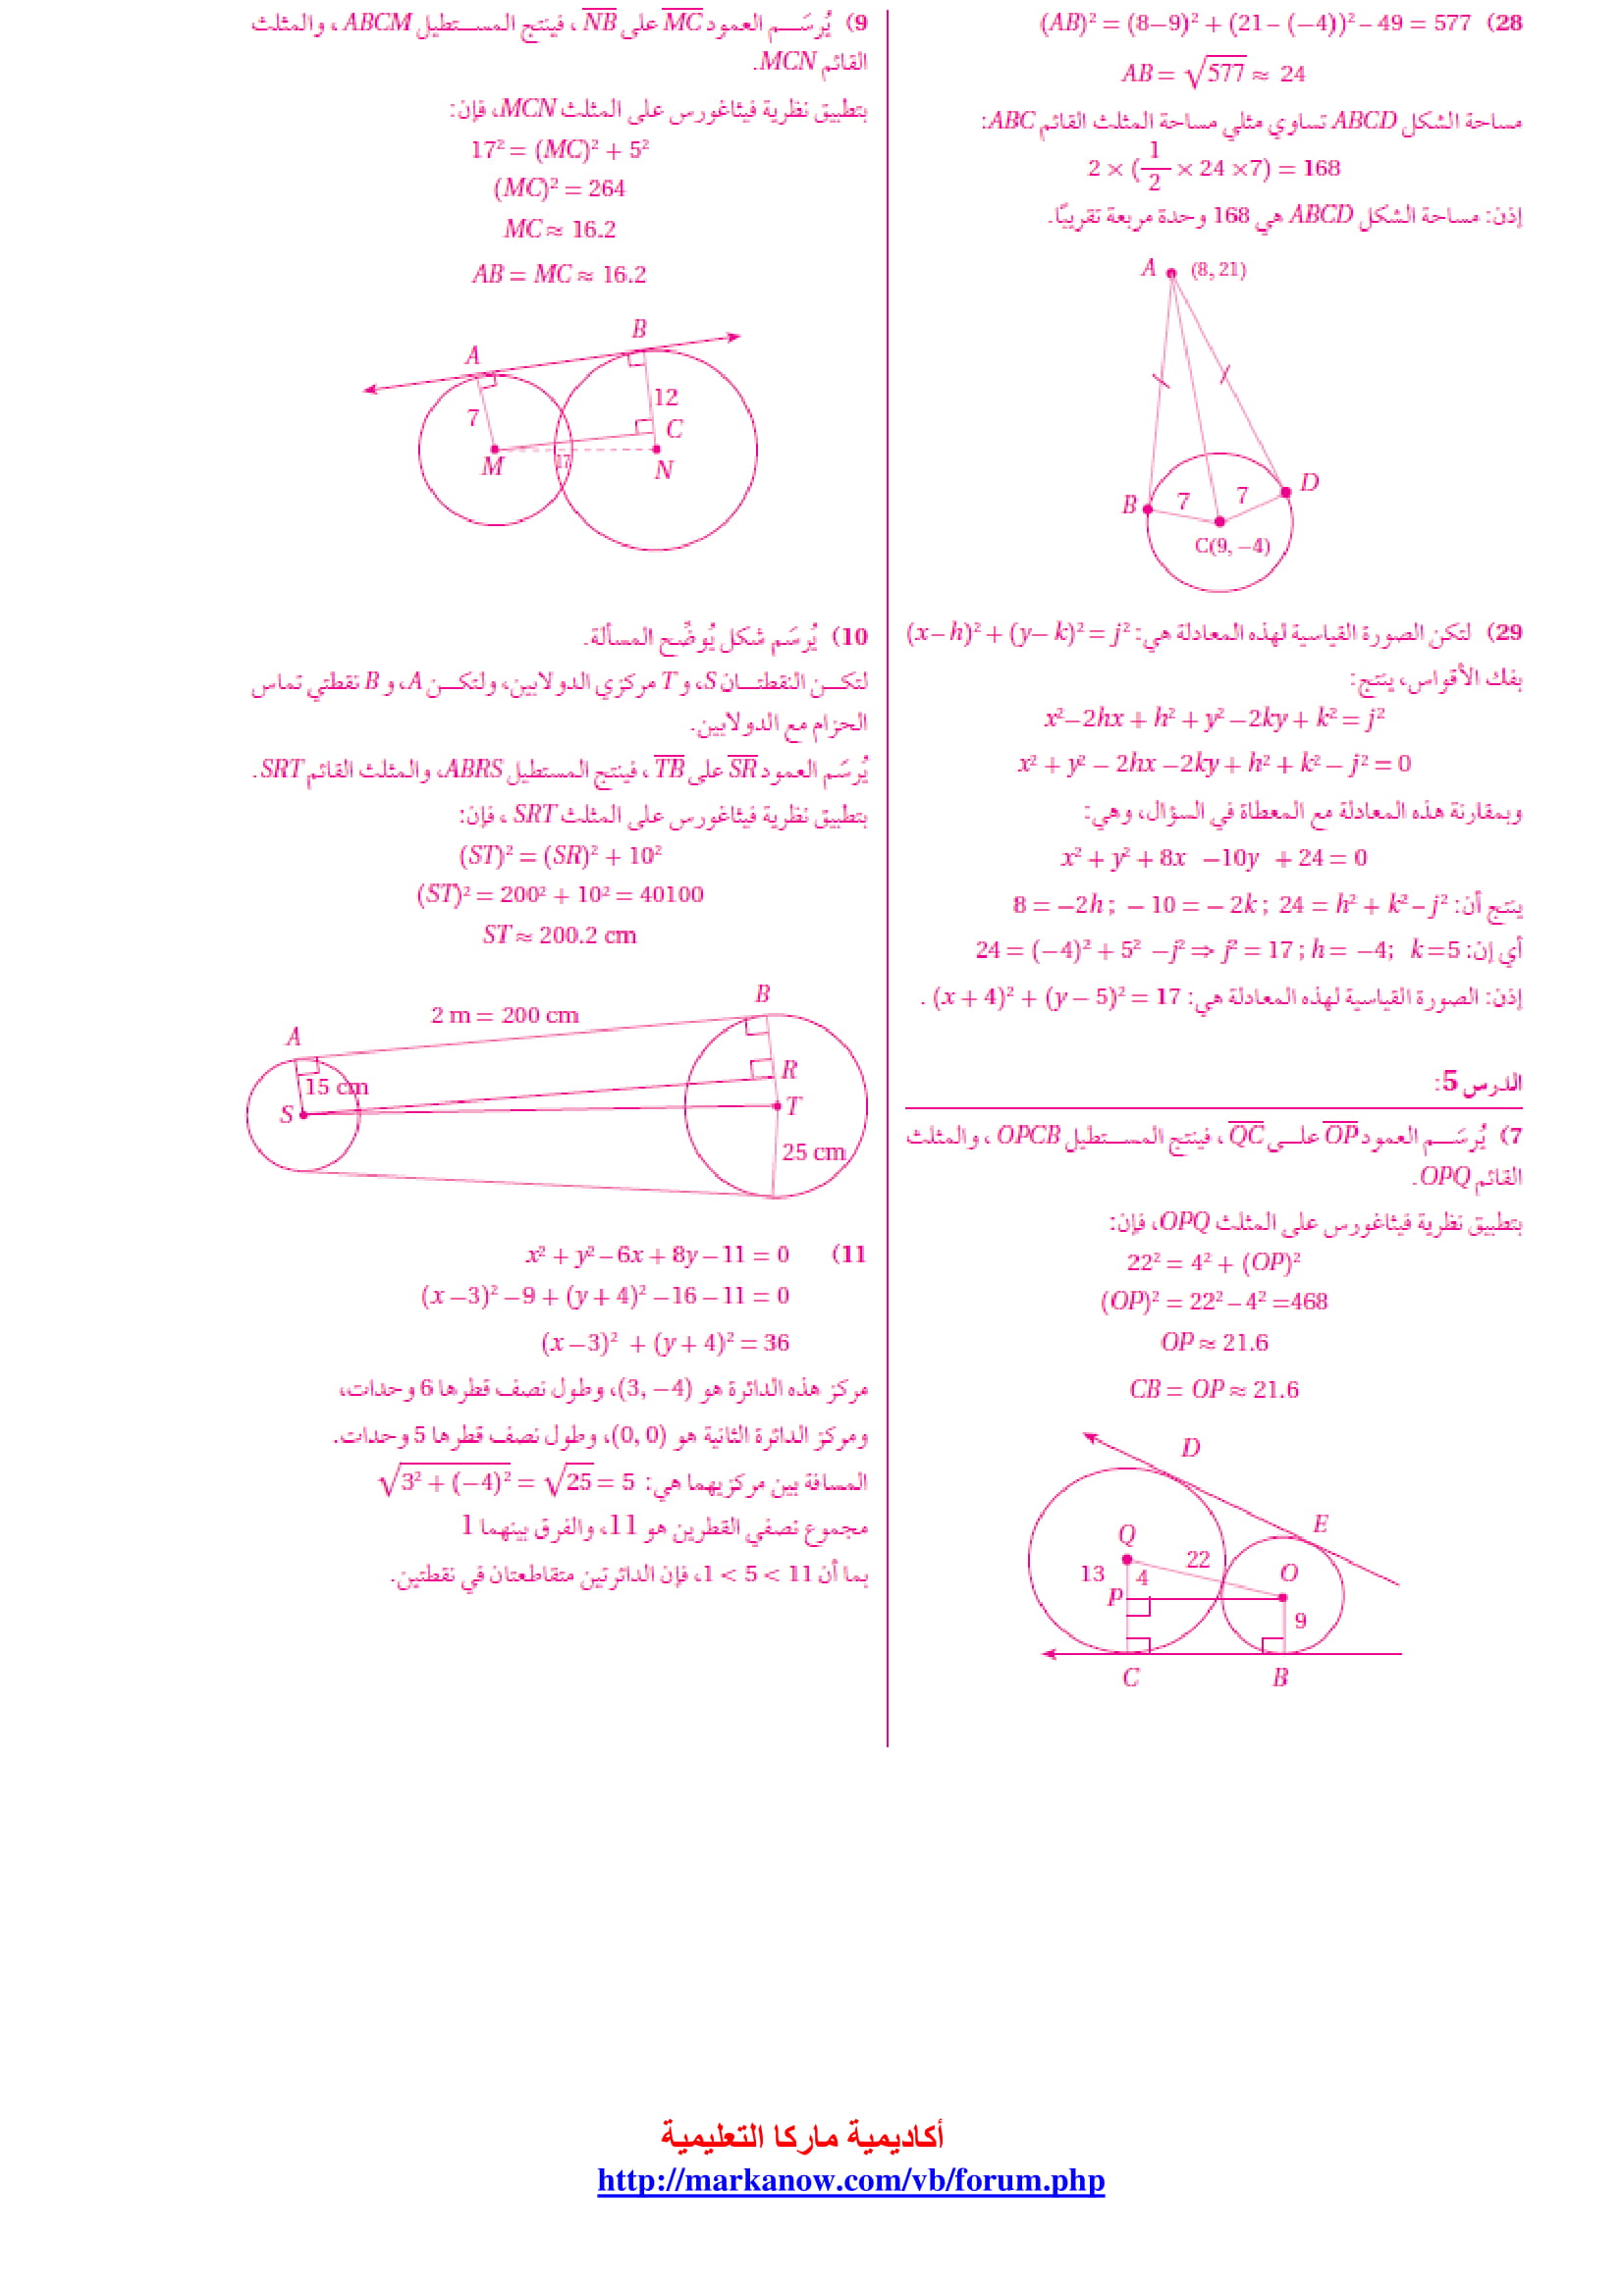 28) (AB)² = (8–9)² + (21 – (–4))² – 49 = 577
AB = √577 ≈ 24
مساحة الشكل ABCD تساوي مثلي مساحة المثلث القائم ABC:
2 × (1/2 × 24 ×7) = 168
إذن: مساحة الشكل ABCD هي 168 وحدة مربعة تقريبًا.
A (8, 21)
B 7 7 D
C(9, –4)
29) لتكن الصورة القياسية لهذه المعادلة هي: (x– h)² + (y– k)² = j²
بفك الأقواس، ينتج:
x²–2hx + h² + y² –2ky + k² = j²
x² + y² – 2hx –2ky + h² + k² – j² = 0
وبمقارنة هذه المعادلة مع المعطاة في السؤال، وهي:
x² + y² + 8x –10y + 24 = 0
ينتج أن: 8 = –2h ; – 10 = – 2k ; 24 = h² + k² – j²
أي إن: 24 = (–4)² + 5² –j² ⇒ j² = 17 ; h = –4; k =5
إذن: الصورة القياسية لهذه المعادلة هي: (x + 4)² + (y – 5)² = 17 .
الدرس 5:
7) يُرسَم العمود OP على QC ، فينتج المستطيل OPCB ، والمثلث
القائم OPQ.
بتطبيق نظرية فيثاغورس على المثلث OPQ، فإن:
22² = 4² + (OP)²
(OP)² = 22² – 4² =468
OP ≈ 21.6
CB = OP ≈ 21.6
D
E
Q
13 4 22 O
P
9
C B
9) يُرسَم العمود MC على NB ، فينتج المستطيل ABCM ، والمثلث
القائم MCN.
بتطبيق نظرية فيثاغورس على المثلث MCN، فإن:
17² = (MC)² + 5²
(MC)² = 264
MC ≈ 16.2
AB = MC ≈ 16.2
B
A
7 12
C
M 17 N
10) يُرسَم شكل يُوضِّح المسألة.
لتكن النقطتان S، و T مركزي الدولابين، ولتكن A، و B نقطتي تماس
الحزام مع الدولابين.
يُرسَم العمود SR على TB ، فينتج المستطيل ABRS، والمثلث القائم SRT.
بتطبيق نظرية فيثاغورس على المثلث SRT ، فإن:
(ST)² = (SR)² + 10²
(ST)² = 200² + 10² = 40100
ST ≈ 200.2 cm
B
2 m = 200 cm
A
R
15 cm
S T
25 cm
11) x² + y² – 6x + 8y – 11 = 0
(x –3)² –9 + (y + 4)² –16 – 11 = 0
(x –3)² + (y + 4)² = 36
مركز هذه الدائرة هو (3, –4)، وطول نصف قطرها 6 وحدات،
ومركز الدائرة الثانية هو (0, 0)، وطول نصف قطرها 5 وحدات.
المسافة بين مركزيهما هي: √3² + (–4)² = √25 = 5
مجموع نصفي القطرين هو 11، والفرق بينهما 1
بما أن 1 < 5 < 11، فإن الدائرتين متقاطعتان في نقطتين.
أكاديمية ماركا التعليمية
http://markanow.com/vb/forum.php